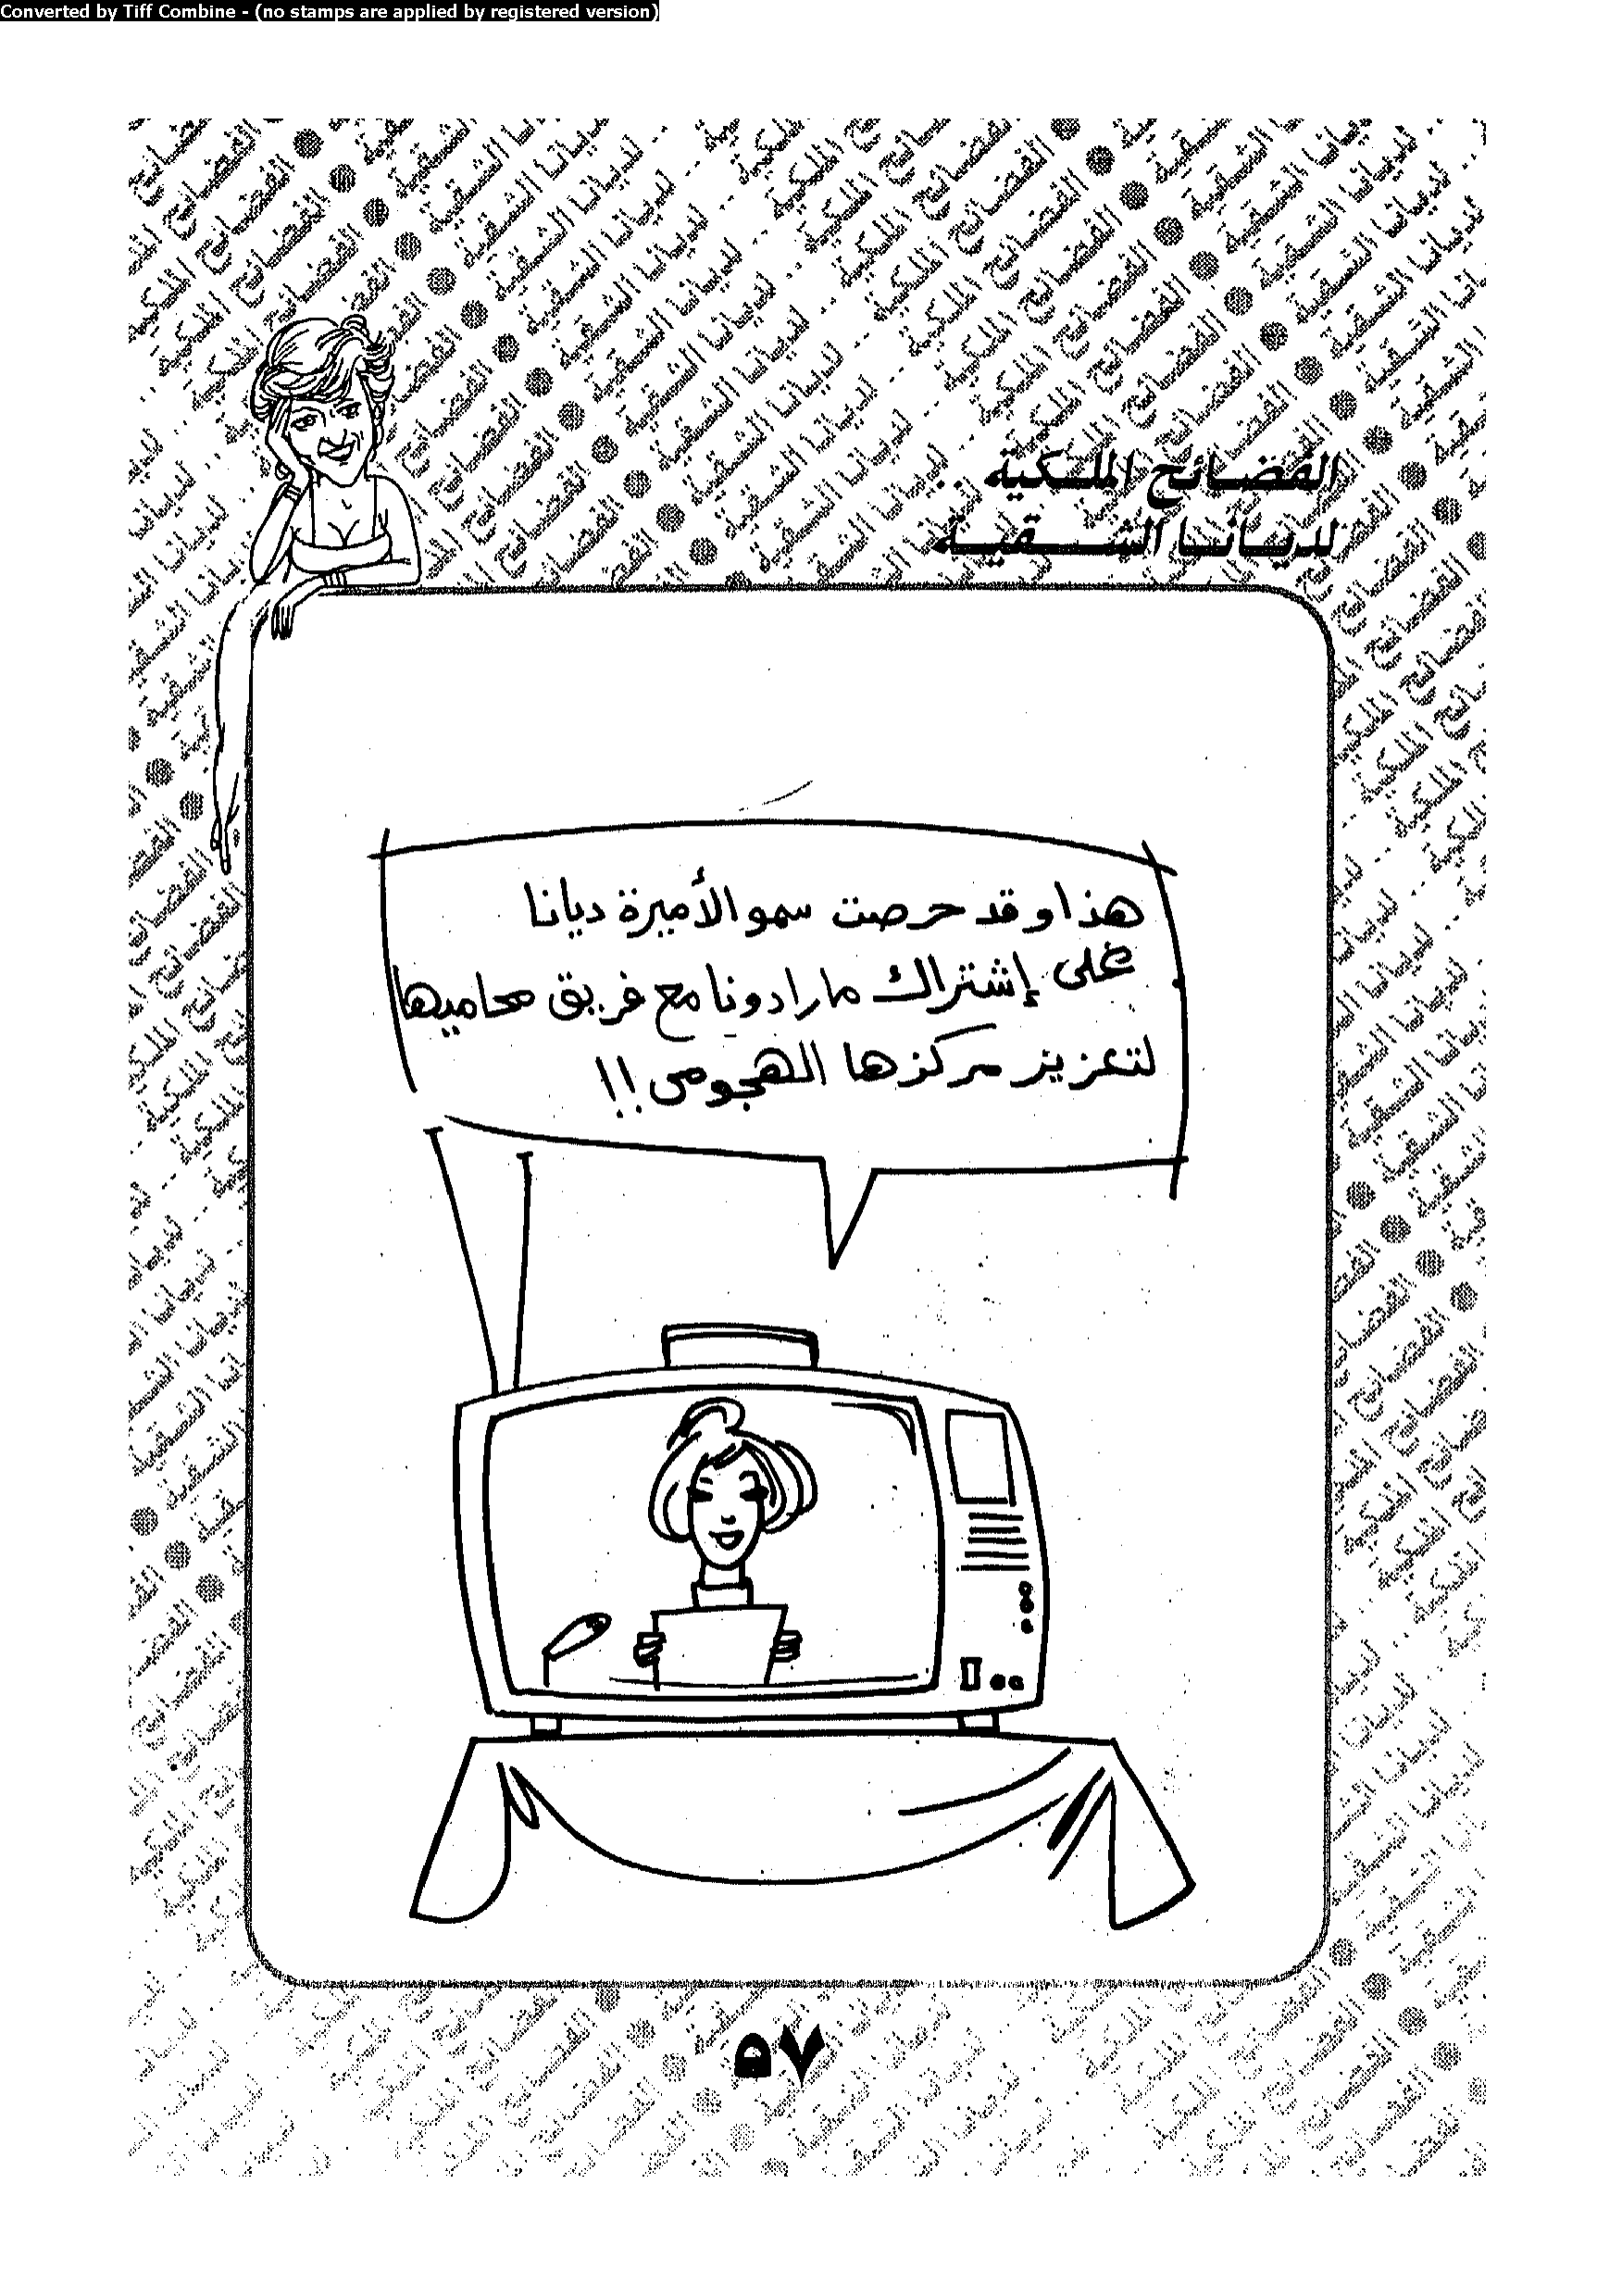 Converted by Tiff Combine - (no stamps are applied by registered version)
الفضائح الملكية ..
لديانا الشقية
هذا وقد حرصت سمو الأميرة ديانا
على إشتراك مارادونا مع فريق محاميها
لتعزيز مركزها الهجومى !!
٥٧